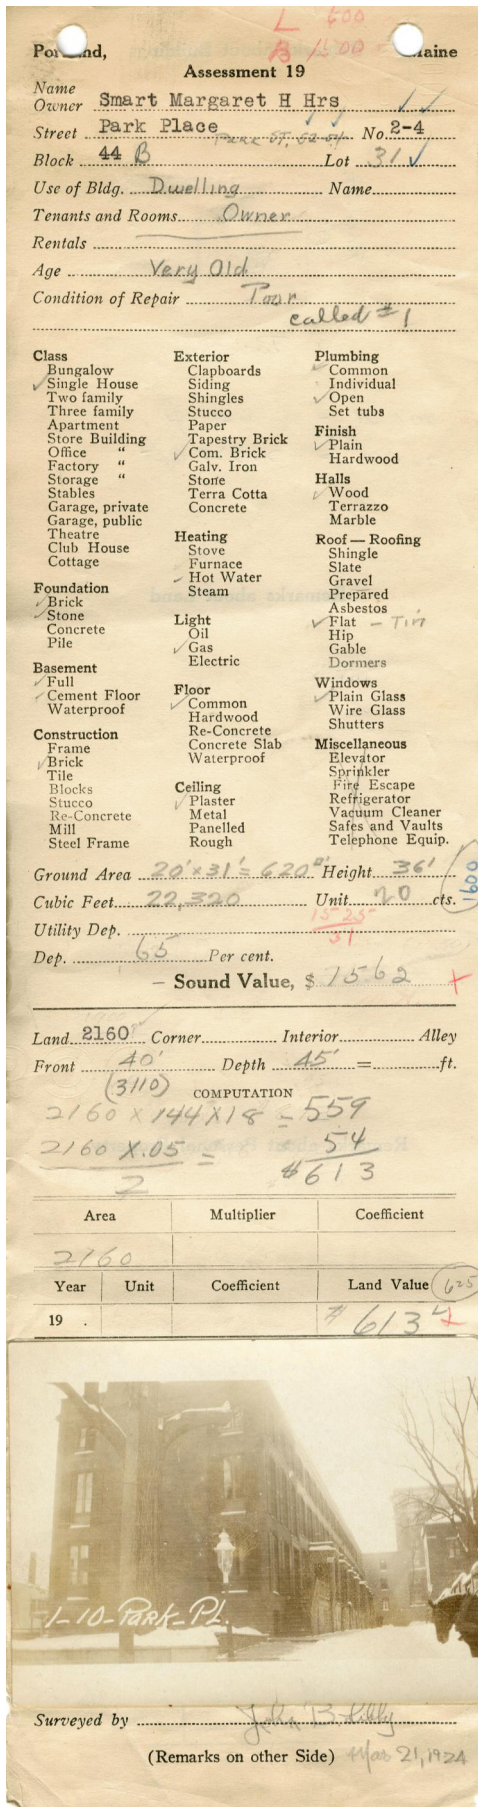 L 600
B 1500 =
Portland, Maine
Assessment 19
Name
Owner Smart Margaret H Hrs
Street Park Place Park St, 52-54 No. 2-4
Block 44 B Lot 31
Use of Bldg. Dwelling Name
Tenants and Rooms Owner
Rentals
Age Very Old
Condition of Repair Poor
called #1
Class
Bungalow
Single House
Two family
Three family
Apartment
Store Building
Office "
Factory "
Storage "
Stables
Garage, private
Garage, public
Theatre
Club House
Cottage
Foundation
Brick
Stone
Concrete
Pile
Basement
Full
Cement Floor
Waterproof
Construction
Frame
Brick
Tile
Blocks
Stucco
Re-Concrete
Mill
Steel Frame
Exterior
Clapboards
Siding
Shingles
Stucco
Paper
Tapestry Brick
Com. Brick
Galv. Iron
Stone
Terra Cotta
Concrete
Heating
Stove
Furnace
Hot Water
Steam
Light
Oil
Gas
Electric
Floor
Common
Hardwood
Re-Concrete
Concrete Slab
Waterproof
Ceiling
Plaster
Metal
Panelled
Rough
Plumbing
Common
Individual
Open
Set tubs
Finish
Plain
Hardwood
Halls
Wood
Terrazzo
Marble
Roof — Roofing
Shingle
Slate
Gravel
Prepared
Asbestos
Flat - Tin
Hip
Gable
Dormers
Windows
Plain Glass
Wire Glass
Shutters
Miscellaneous
Elevator
Sprinkler
Fire Escape
Refrigerator
Vacuum Cleaner
Safes and Vaults
Telephone Equip.
Ground Area 20' x 31' = 620 Height 36'
Cubic Feet 22,320 Unit 20 cts.
1600
Utility Dep. 1525
31
Dep. 65 Per cent.
- Sound Value, $ 1562
Land 2160 Corner Interior Alley
Front 40' Depth 45' = ft.
(3110) COMPUTATION
2160 x 144 x 18 = 559
2160 x .05 = 54
2 $613
Area Multiplier Coefficient
2160
Year Unit Coefficient Land Value 625
19 . # 613
1-10-PARK-PL.
Surveyed by John B. Kilby
(Remarks on other Side) Mar 21, 1924